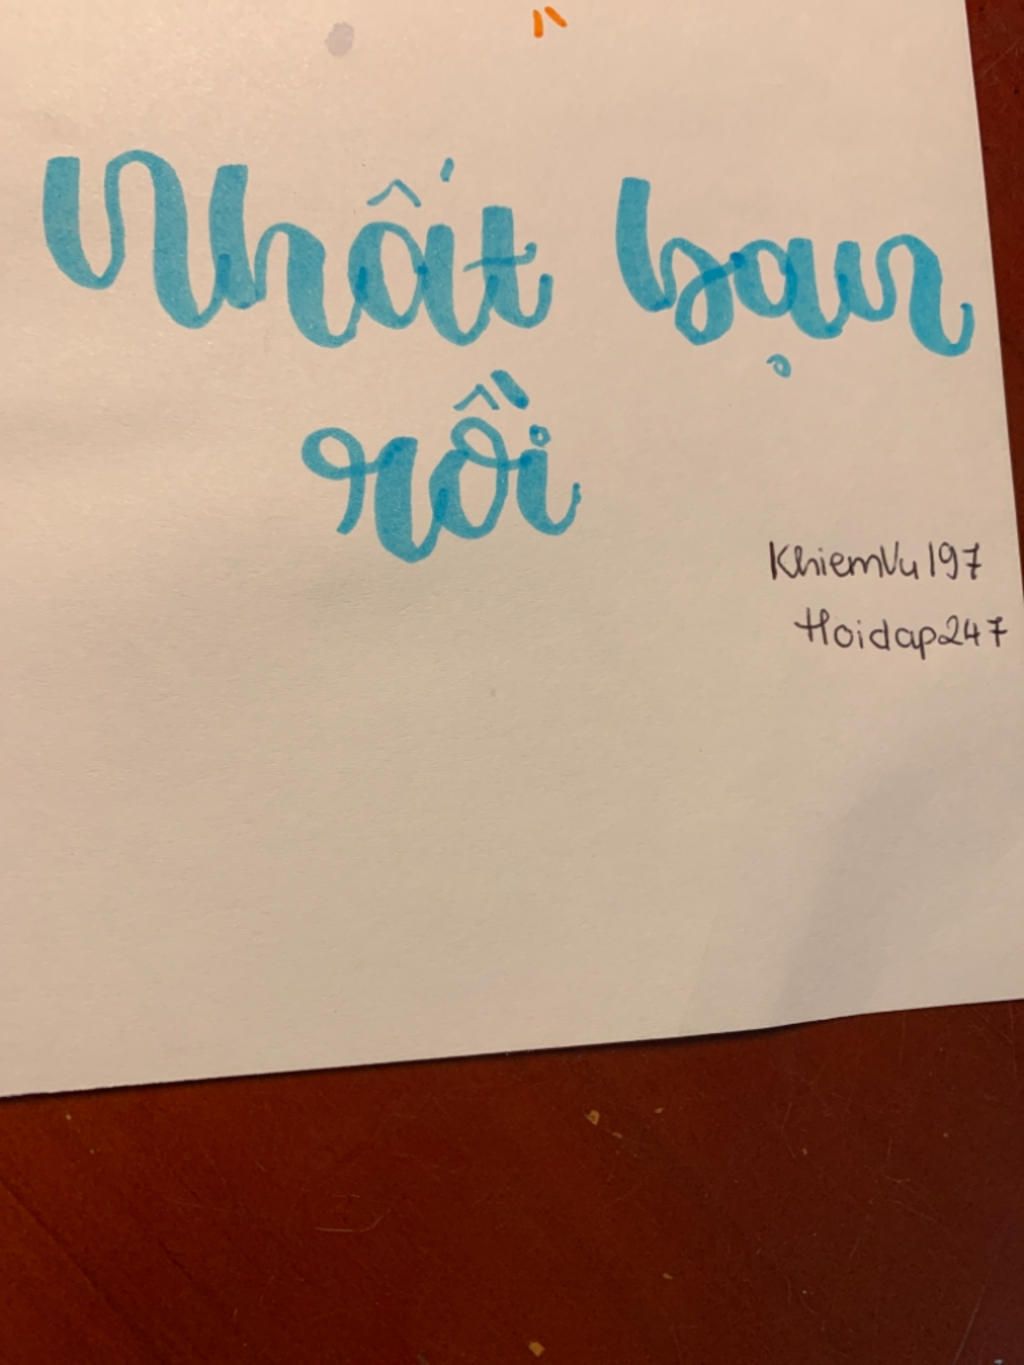 Nhất bạn
rồi
KhiemVu197
Hoidap247